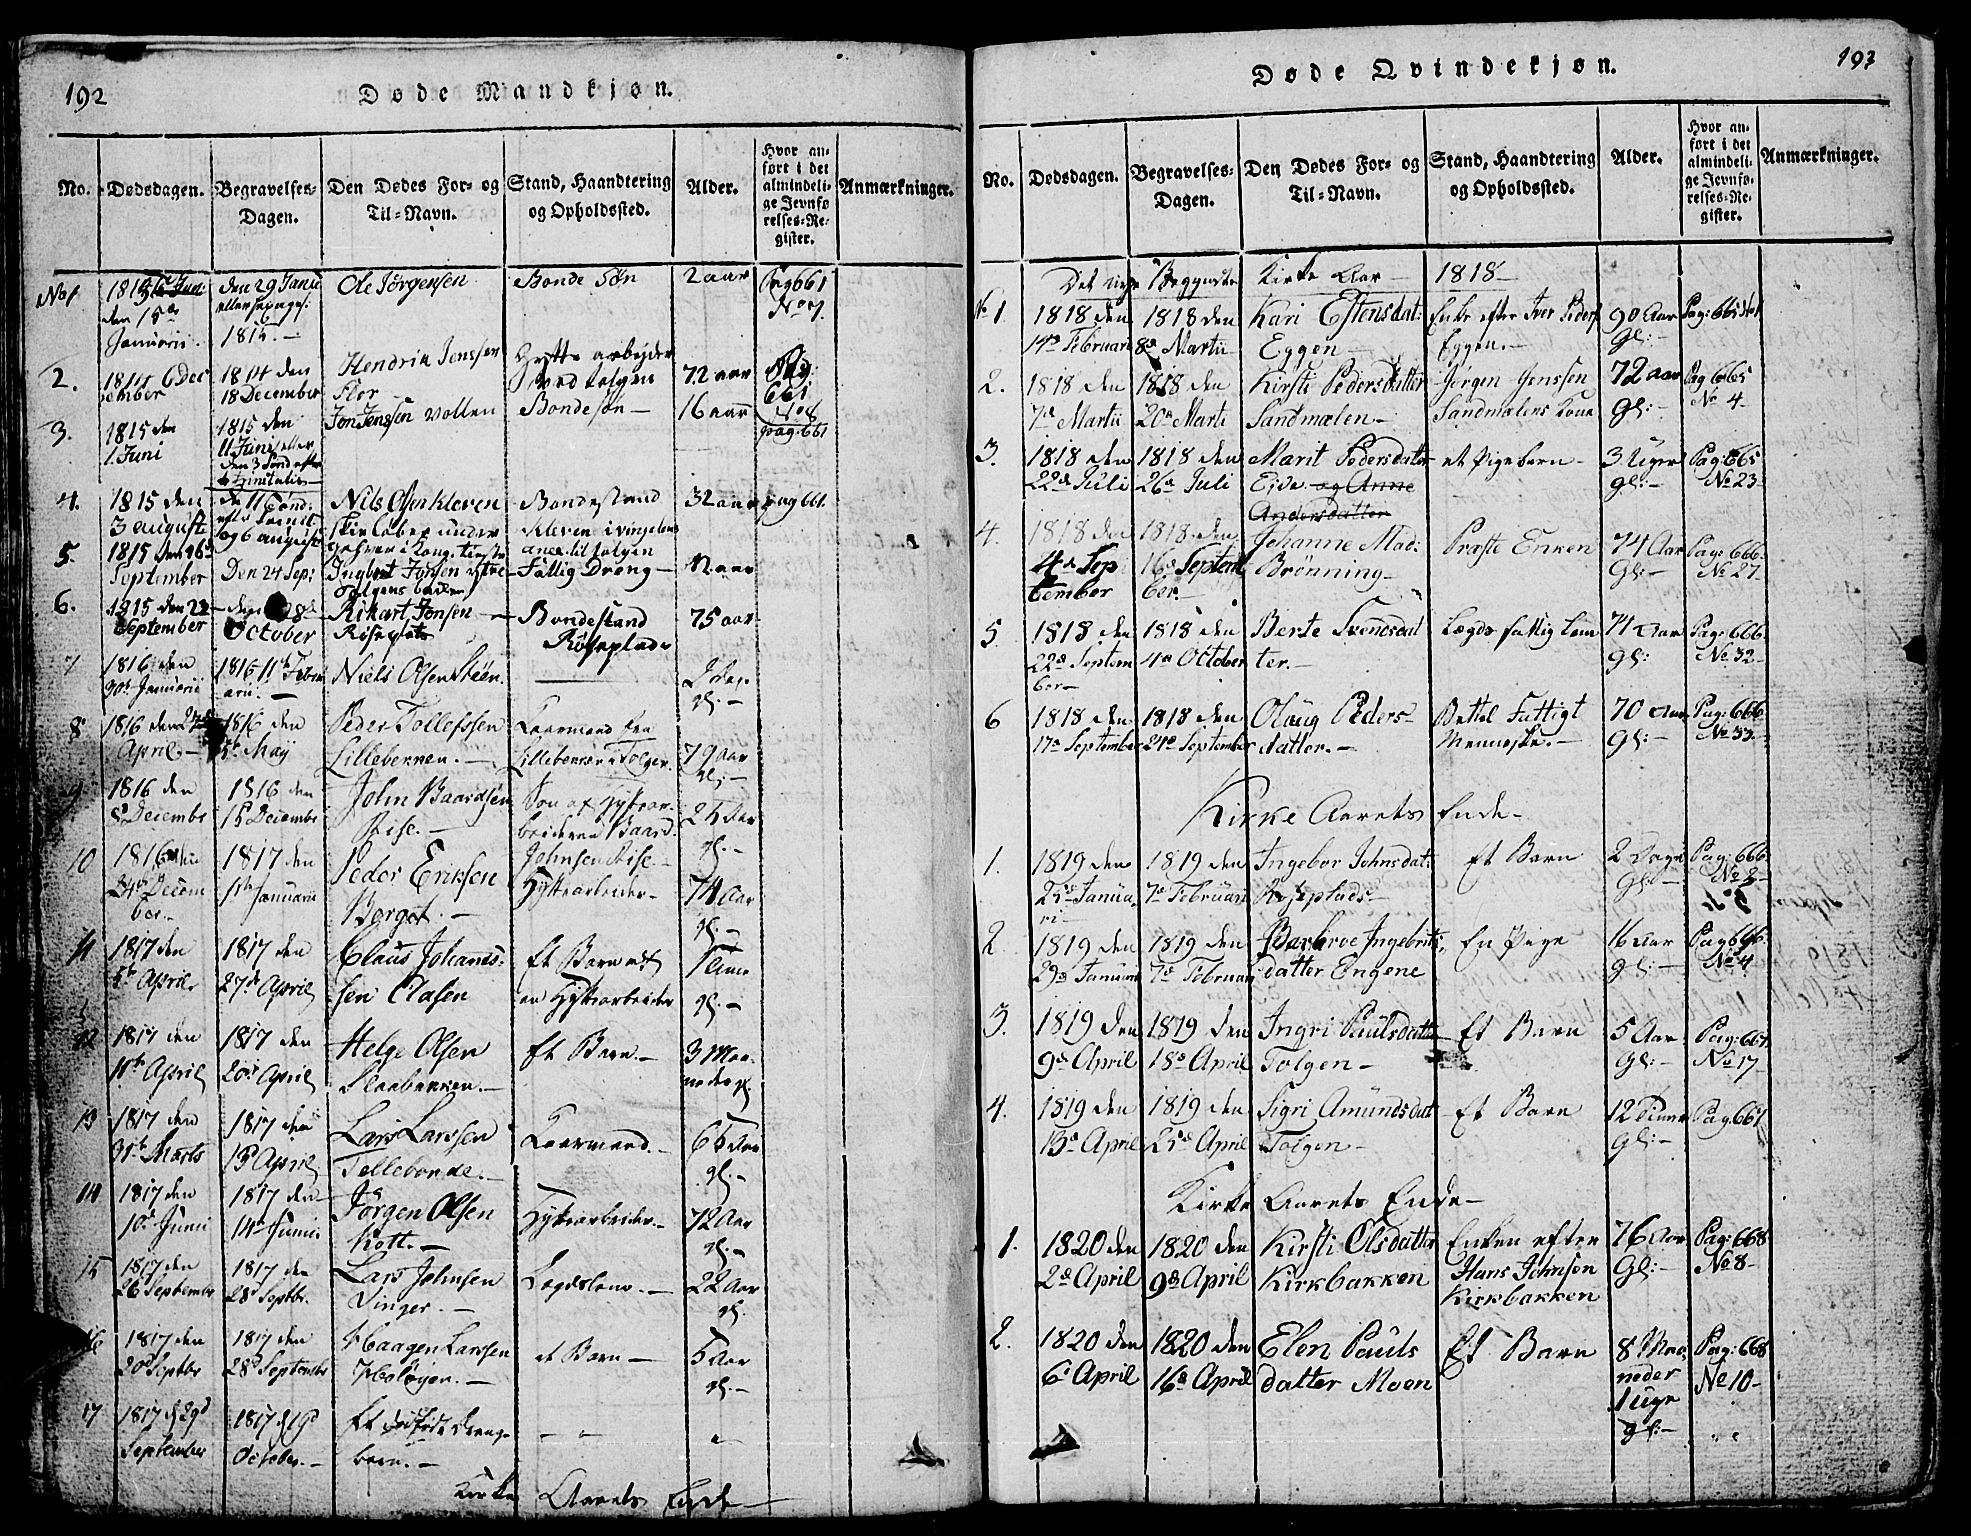 192
Døde Mandkjøn.
No.
Dødsdagen.
Begravelses-
Dagen.
Den Dødes For- og
Til-Navn.
Stand, Haandtering
og Opholdssted.
Alder.
Hvor an-
ført i det
almindeli-
ge Jevnfø
relses-Re-
gister.
Anmærkninger.
No 1
den 15de
Januarii.
den 29 Janu
1815.—
Ole Jörgensen
Bonde Søn
2 aar
Pag 661
No 7.
2.
1814 6 Dec
ember
1814 den
18 December
Hendrik Jenssen
Flor
Hytte arbejder
ved Tolgen
72 aar
Pag:
661
No 8
3.
1815 den
1. Juni
1815 den
11 Juni eller
den 3 Sönd efter
Trinitatis—
Jon Jenssen Vollen
Bondesøn—
16 aar
pag: 661
4.
1815 den
3 august
den 11 Sönd:
efter Trinit.
og 6 august
Nils Olsen Kleven
Skielöber under
Bondestand
Kleven i Vingelens
anex til Tolgen
32 aar
pag 661.
5.
1815 den 16de
September
Den 24 Sep:
Ingbret Jonsen
Fattig Dreng—
12 aar
6.
1815 den 22
September
den 8de
October
Rikart Jonsen
Röseplats
Bondestand
Röseplads
75 aar
7
1816 den
30te Januarii
1816 11te Febru
arii.—
Niels Olsen Stöen.
2 dage
gl.—
8
1816 den 24de
April.—
1816 den
5te May
Peder Tollefssen
Lillebekken.—
Gaarmand fra
Lillebekken Tolgen
79 Aar
gl.—
9
1816 den
8de Decembr
1816 den
15 Decembr
John Baardsen
Rise.—
Søn af Hyttear-
beideren Baard
Johnsen Rise—
25 Aar
gl.—
10
1816 den
24de Decem
ber.—
1817 den
1ste Januarii
Peder Eriksen
Berget.—
Hyttearbeider—
74 Aar
gl.—
11
1817 den
5te April.
1817 den
27de April
Claus Johannes-
sen Olasen
Et Barn af
en Hyttearbeider
1 Time
gl.—
12
1817 den
11te April
1817 den
20de April
Helge Olsen
Slaabakken.—
Et Barn.—
3 Maa-
neder gl.
13
1817 den
31te Marts
1817 den
13de April
Lars Larssen
Tellebonde.—
Gaarmand.—
65 Aar
gl.—
14
1817 den
10de Junii
1817 den
14de Junii.
Jörgen Olsen
Kott.—
Hyttearbeider—
72 Aar
gl.—
15
1817 den
26 Septembr
1817 den
28 Septbr.
Lars Johnsen
Vinger.—
Lægdslem.—
22 Aar
gl.—
16
1817 den
20de Septbr
1817 den
28de Septembr
Haagen Larssen
Holöyen.—
et Barn—
5 Aar
gl.—
17
1817 d 29d
September
1817 d 19d
October.—
Et dødfödt Drenge
barn.—
Kirke Aarets Ende—
193
Døde Qvindekjøn.
No.
Dødsdagen.
Begravelses-
Dagen.
Den Dødes For- og
Til-Navn.
Stand, Haandtering
og Opholdssted.
Alder.
Hvor an-
ført i det
almindeli-
ge Jevnfø-
relses-Re-
gister.
Anmærkninger.
Det nye Begyndte Kirke Aar — 1818—
No 1.
1818 den
14de Februari
1818 den
8de Martii
Kari Estensdat:
Eggen—
Enke efter Iver Peders
Eggen.—
90 Aar
gl:—
Pag: 665 No 1
2.
1818 den
7de Martii
1818 den
20de Marti
Kirsti Pedersdatter
Sandmælen—
Jørgen Jenssen
Sandmælens Kone
72 aar
gl:—
Pag 665
No 4.
3.
1818 den
22de Juli
1818 den
26de Juli
Marit Pedersdatter
Eide. og Anne
Andersdatter
et Pigebarn—
3 Uger
gl:—
Pag: 665
No 23.
4.
1818 den
4de Sep
tember
1818 den
16de Septem
ber.—
Johanne Mad:
Brönning—
Præste Enken
74 Aar
gl:—
Pag: 666.
No 27.
5
1818 den
22de Septem
ber—
1818 den
4de October
Berte Svendsdat
ter.—
Lægds fattig Lem
71 Aar
gl:—
Pag: 666.
No 32.
6
1818 den
17de September
1818 den
24de September
Olaug Peders-
datter.—
Bettel Fattigt
Menneske.—
70 Aar
gl:—
Pag: 666.
No 33.
Kirke Aarets Ende—
1.
1819 den
25de Janua
ri—
1819 den
7de Februari
Ingebor Johnsdat:
Röseplads—
Et Barn
2 Dage
gl:—
Pag: 666.
No 3—
2.
1819 den
29de Januari
1819 den
7de Februari
Barbroe Ingebrits
datter Engene
En Pige
16 Aar
gl:—
Pag 666.
No 4
3.
1819 den
9de April
1819 den
18de April
Ingri Paulsdatter
Tolgen—
Et Barn
5 Aar
gl:—
Pag: 667.
No 17—
4.
1819 den
13de April
1819 den
25de April
Sigri Amundsdat
Tolgen—
Et Barn
12 Timer
gl:—
Pag 667
Kirke Aarets Ende—
1.
1820 den
2de April
1820 den
9de April
Kirsti Olsdatter
Kirkbakken
Enken efter
Hans Johnsen
Kirkbakken
76 Aar
gl:—
Pag: 668
No 8—
2.
1820 den
6te April
1820 den
16de April
Elen Pauls
datter Moen
Et Barn
8 Maa-
neder
1 uge
gl:—
Pag: 668
No 10—